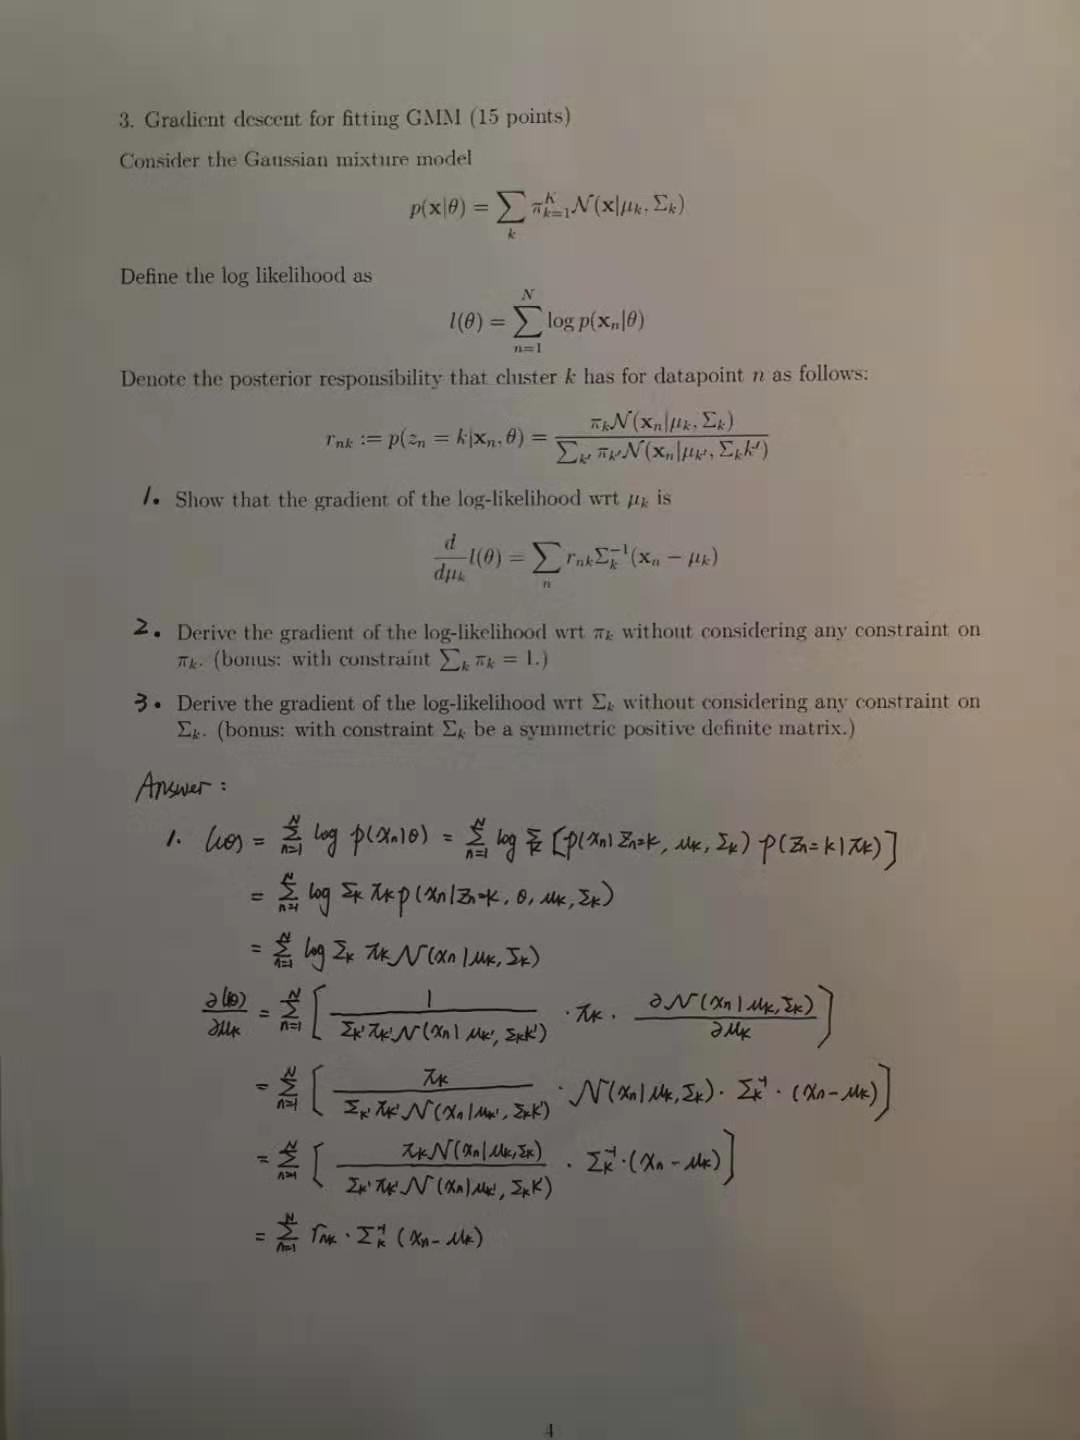 3. Gradient descent for fitting GMM (15 points)
Consider the Gaussian mixture model
p(x|θ) = ∑_k π_{k=1}^K N(x|μ_k, Σ_k)
Define the log likelihood as
l(θ) = ∑_{n=1}^N log p(x_n|θ)
Denote the posterior responsibility that cluster k has for datapoint n as follows:
r_{nk} := p(z_n = k|x_n, θ) = π_k N(x_n|μ_k, Σ_k) / ∑_{k'} π_{k'} N(x_n|μ_{k'}, Σ_k k')
1. Show that the gradient of the log-likelihood wrt μ_k is
d/dμ_k l(θ) = ∑_n r_{nk} Σ_k^{-1} (x_n − μ_k)
2. Derive the gradient of the log-likelihood wrt π_k without considering any constraint on
π_k. (bonus: with constraint ∑_k π_k = 1.)
3. Derive the gradient of the log-likelihood wrt Σ_k without considering any constraint on
Σ_k. (bonus: with constraint Σ_k be a symmetric positive definite matrix.)
Answer :
1. l(θ) = ∑_{n=1}^N log p(x_n|θ) = ∑_{n=1}^N log ∑_k [p(x_n|z_n=k, μ_k, Σ_k) p(z_n=k|π_k)]
= ∑_{n=1}^N log Σ_k π_k p(x_n|z_n=k, θ, μ_k, Σ_k)
= ∑_{n=1}^N log Σ_k π_k N(x_n|μ_k, Σ_k)
∂l(θ)/∂μ_k = ∑_{n=1}^N [ 1 / Σ_{k'} π_{k'} N(x_n|μ_{k'}, Σ_k k') · π_k · ∂N(x_n|μ_k, Σ_k)/∂μ_k ]
= ∑_{n=1}^N [ π_k / Σ_{k'} π_{k'} N(x_n|μ_{k'}, Σ_k k') · N(x_n|μ_k, Σ_k) · Σ_k^{-1} · (x_n − μ_k) ]
= ∑_{n=1}^N [ π_k N(x_n|μ_k, Σ_k) / Σ_{k'} π_{k'} N(x_n|μ_{k'}, Σ_k k') · Σ_k^{-1} · (x_n − μ_k) ]
= ∑_{n=1}^N r_{nk} · Σ_k^{-1} (x_n − μ_k)
4